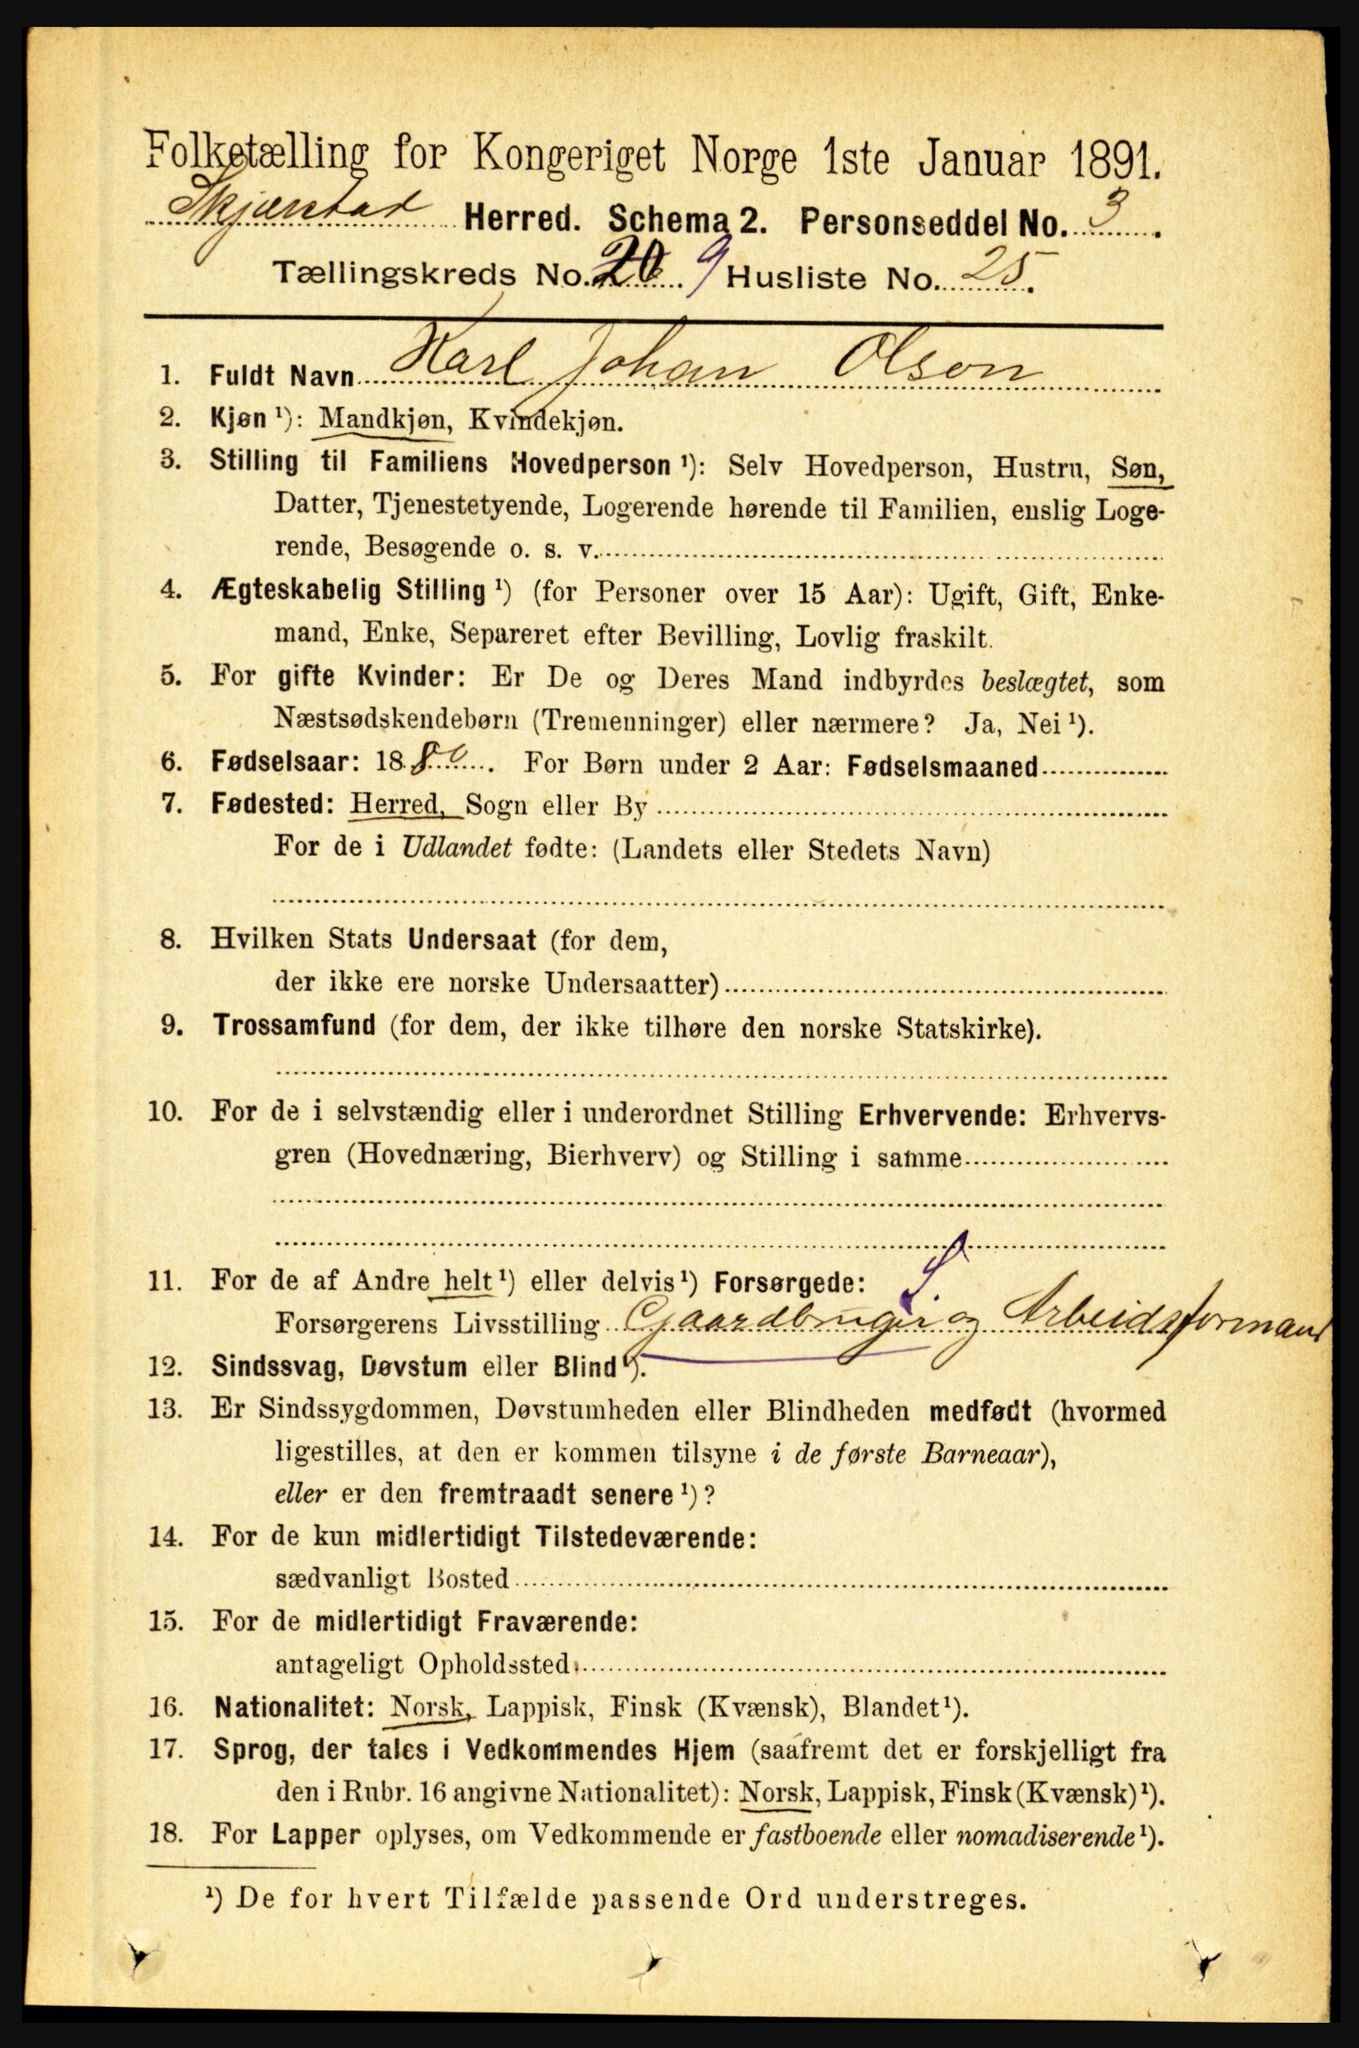 Folketælling for Kongeriget Norge 1ste Januar 1891.
Skjerstad Herred. Schema 2. Personseddel No. 3.
Tællingskreds No. 20 9 Husliste No. 25.
1. Fuldt Navn Karl Johan Olson
2. Kjøn ¹): Mandkjøn, Kvindekjøn.
3. Stilling til Familiens Hovedperson ¹): Selv Hovedperson, Hustru, Søn,
Datter, Tjenestetyende, Logerende hørende til Familien, enslig Loge-
rende, Besøgende o. s. v.
4. Ægteskabelig Stilling ¹) (for Personer over 15 Aar): Ugift, Gift, Enke-
mand, Enke, Separeret efter Bevilling, Lovlig fraskilt.
5. For gifte Kvinder: Er De og Deres Mand indbyrdes beslægtet, som
Næstsødskendebørn (Tremenninger) eller nærmere? Ja, Nei ¹).
6. Fødselsaar: 1880. For Børn under 2 Aar: Fødselsmaaned
7. Fødested: Herred, Sogn eller By
For de i Udlandet fødte: (Landets eller Stedets Navn)
8. Hvilken Stats Undersaat (for dem,
der ikke ere norske Undersaatter)
9. Trossamfund (for dem, der ikke tilhøre den norske Statskirke).
10. For de i selvstændig eller i underordnet Stilling Erhvervende: Erhvervs-
gren (Hovednæring, Bierhverv) og Stilling i samme
11. For de af Andre helt ¹) eller delvis ¹) Forsørgede: S.
Forsørgerens Livsstilling Gaardbruger og Arbeidsformand
12. Sindssvag, Døvstum eller Blind ¹).
13. Er Sindssygdommen, Døvstumheden eller Blindheden medfødt (hvormed
ligestilles, at den er kommen tilsyne i de første Barneaar),
eller er den fremtraadt senere ¹)?
14. For de kun midlertidigt Tilstedeværende:
sædvanligt Bosted
15. For de midlertidigt Fraværende:
antageligt Opholdssted
16. Nationalitet: Norsk, Lappisk, Finsk (Kvænsk), Blandet ¹).
17. Sprog, der tales i Vedkommendes Hjem (saafremt det er forskjelligt fra
den i Rubr. 16 angivne Nationalitet): Norsk, Lappisk, Finsk (Kvænsk) ¹).
18. For Lapper oplyses, om Vedkommende er fastboende eller nomadiserende ¹).
¹) De for hvert Tilfælde passende Ord understreges.